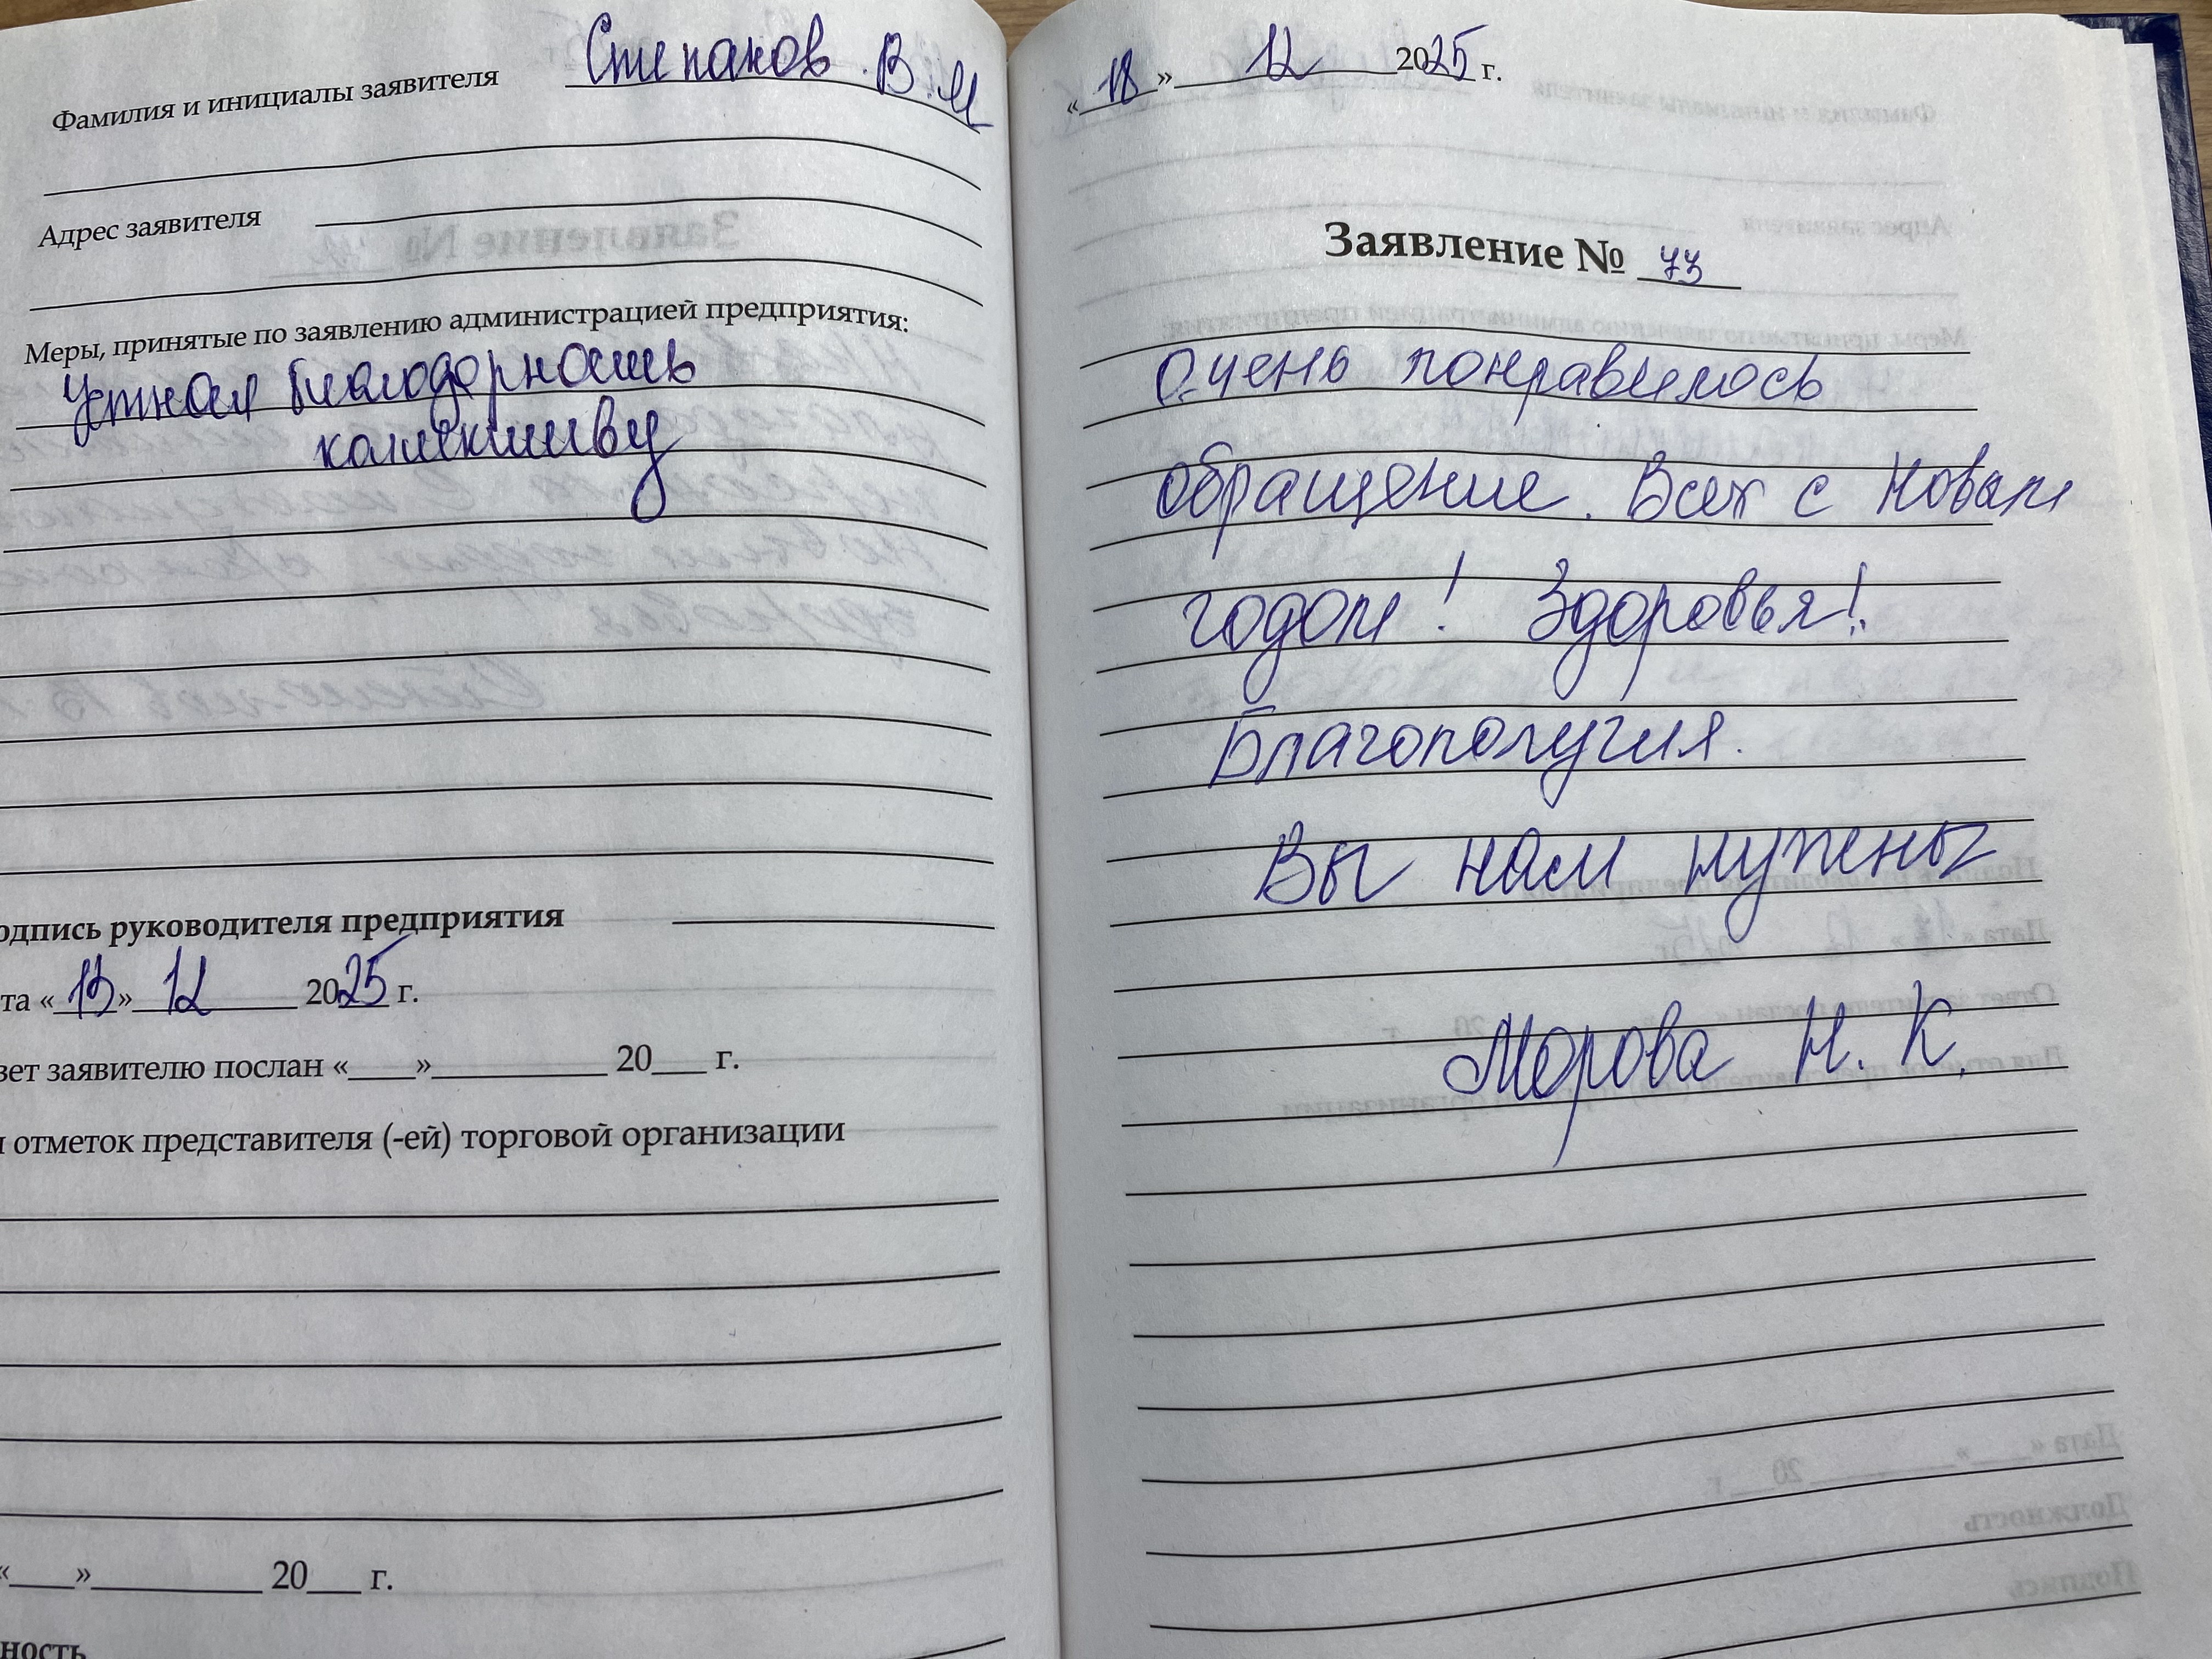 Фамилия и инициалы заявителя Степанов В.М
Адрес заявителя
Меры, принятые по заявлению администрацией предприятия:
Устная благодарность
коллективу
одпись руководителя предприятия
та «13» 12 2025 г.
вет заявителю послан «___»________ 20___ г.
я отметок представителя (-ей) торговой организации
«___»________ 20___ г.
ность
«18» 12 2025 г.
Заявление № 73
Очень понравилось
обращение. Всех с новым
годом! Здоровья!
Благополучия.
Вы нам нужены
Морова Н. К.